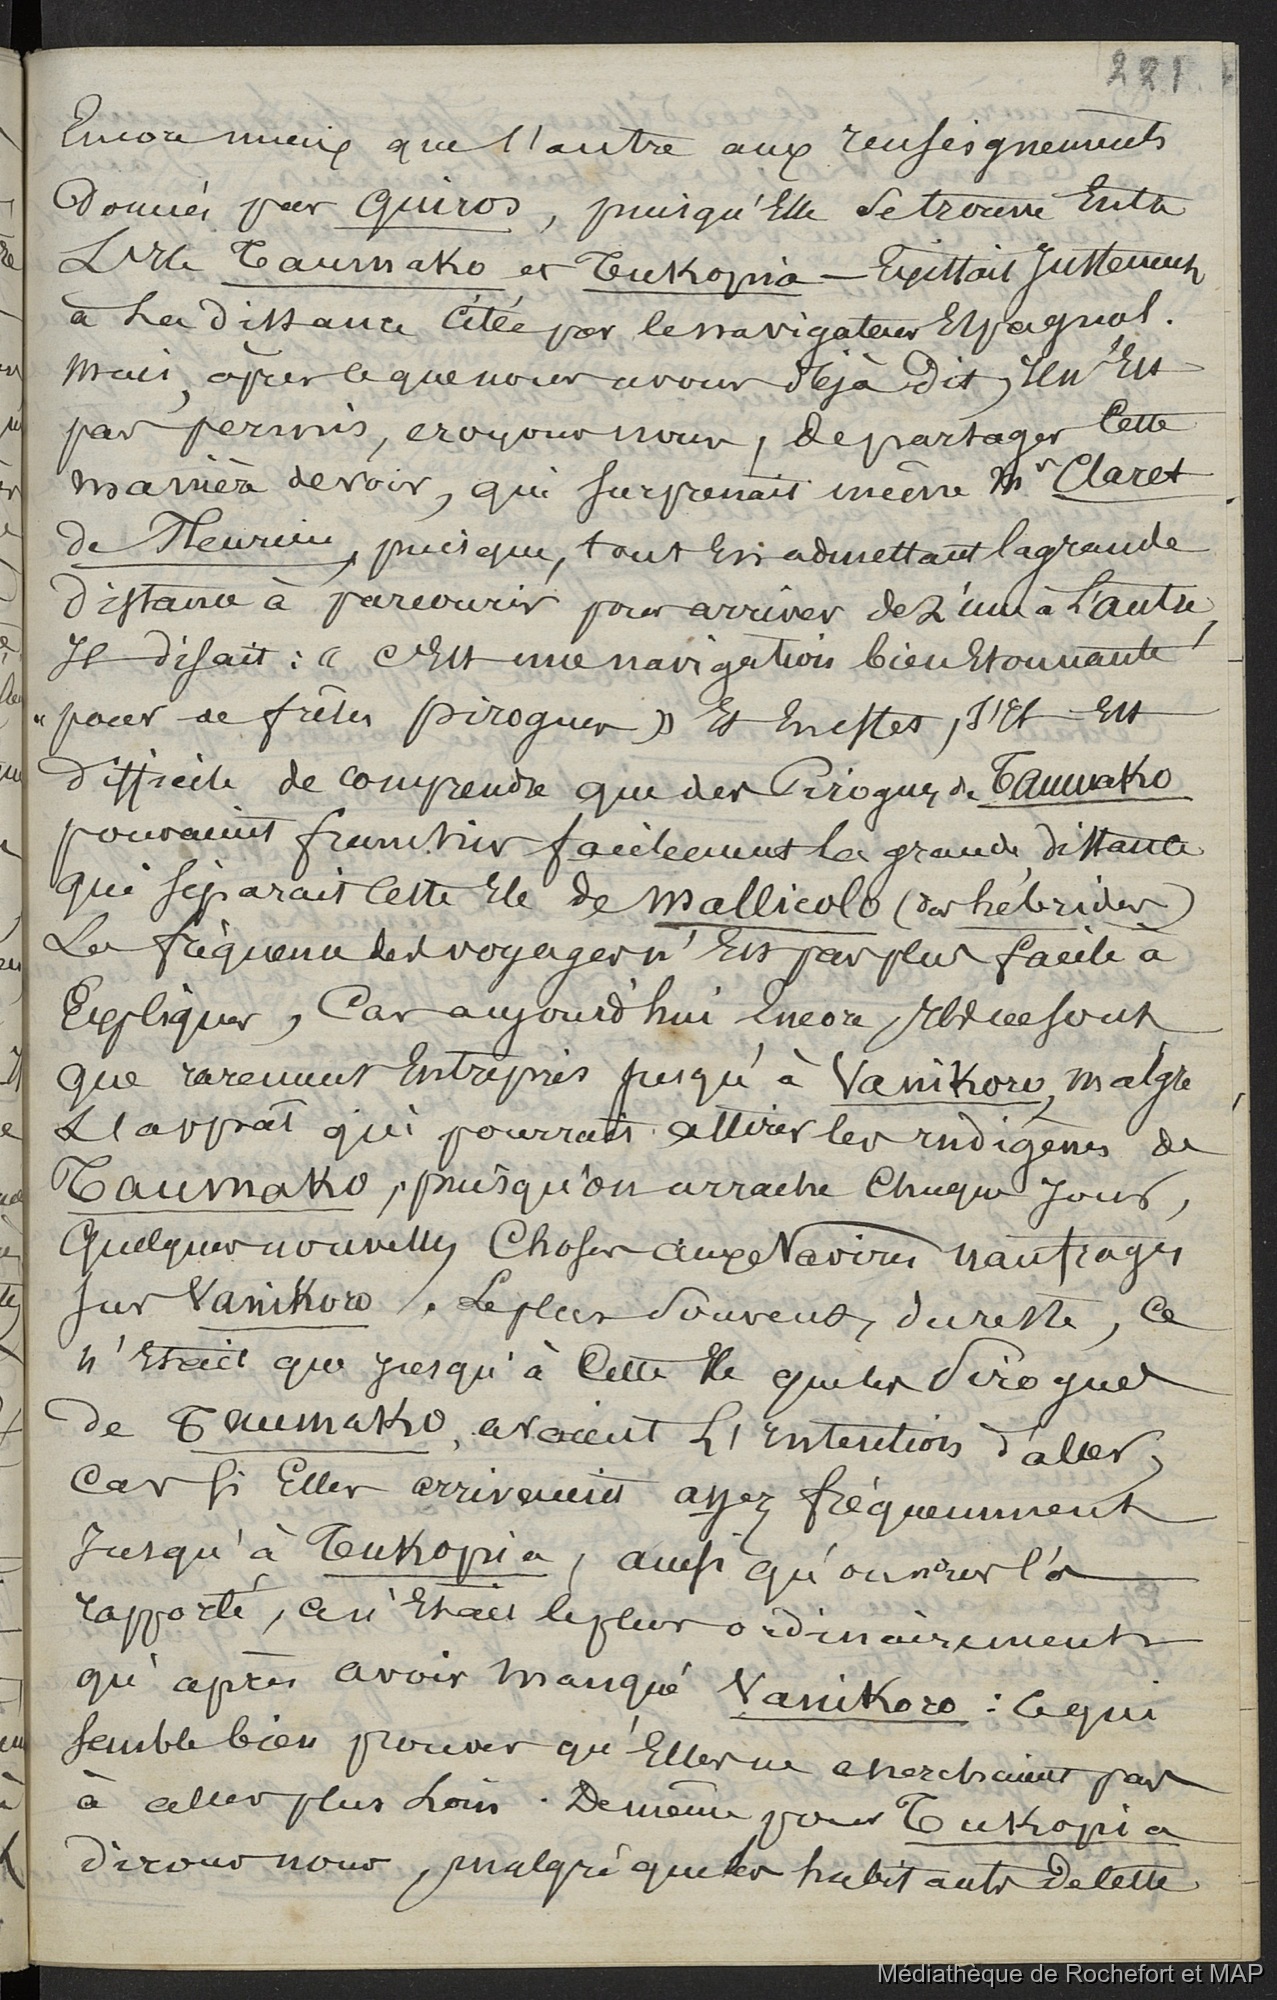 221.
Encore mieux que l'autre aux renseignements
Donnés par Quiros, puisqu'Elle se trouve Entre
L'Ile Taumako et Tukopia — Existait Justement
à La Distance Citée par le navigateur Espagnol.
Mais, après ce que nous avons Déjà Dit, Il n'Est
pas permis, croyons nous, de partager Cette
manière de voir, qui surprenait même Mr Claret
de Fleurieu, puisque, tout En admettant la grande
Distance à parcourir pour arriver de L'une à L'autre,
Il disait : « C'Est une navigation bien Etonnante
" pour de frêles pirogues » Et En effet, s'Il Est
Difficile de comprendre que des Pirogues de Taumako
pouvaient franchir facilement La grande distance
qui séparait Cette Ile de Mallicolo (des hébrides)
La fréquence des voyages n'Est pas plus facile à
Expliquer, Car aujourd'hui Encore, Ils ne sont
que rarement Entrepris jusqu'à Vanikoro, malgré
L'appât qui pourrait attirer les indigènes de
Taumako, puisqu'on arrache Chaque Jour,
Quelques nouvelles Choses aux Navires naufragés
sur Vanikoro. Le plus Souvent, du reste, Ce
n'Etait que jusqu'à Cette Ile que les Pirogues
de Taumako, avaient L'intention d'aller,
Car si Elles arrivaient assez fréquemment
Jusqu'à Tukopia, ainsi qu'on l'a
rapporté, ce n'Etait le plus ordinairement
qu'après avoir manqué Vanikoro : Ce qui
semble bien prouver qu'Elles ne cherchaient pas
à aller plus Loin. De même pour Tukopia
dirons nous, malgré que les habitants De Cette
Médiathèque de Rochefort et MAP